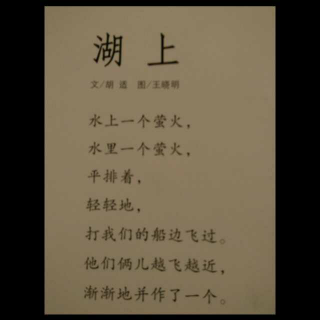 湖上
文/胡适 图/王晓明
水上一个萤火，
水里一个萤火，
平排着，
轻轻地，
打我们的船边飞过。
他们俩儿越飞越近，
渐渐地并作了一个。